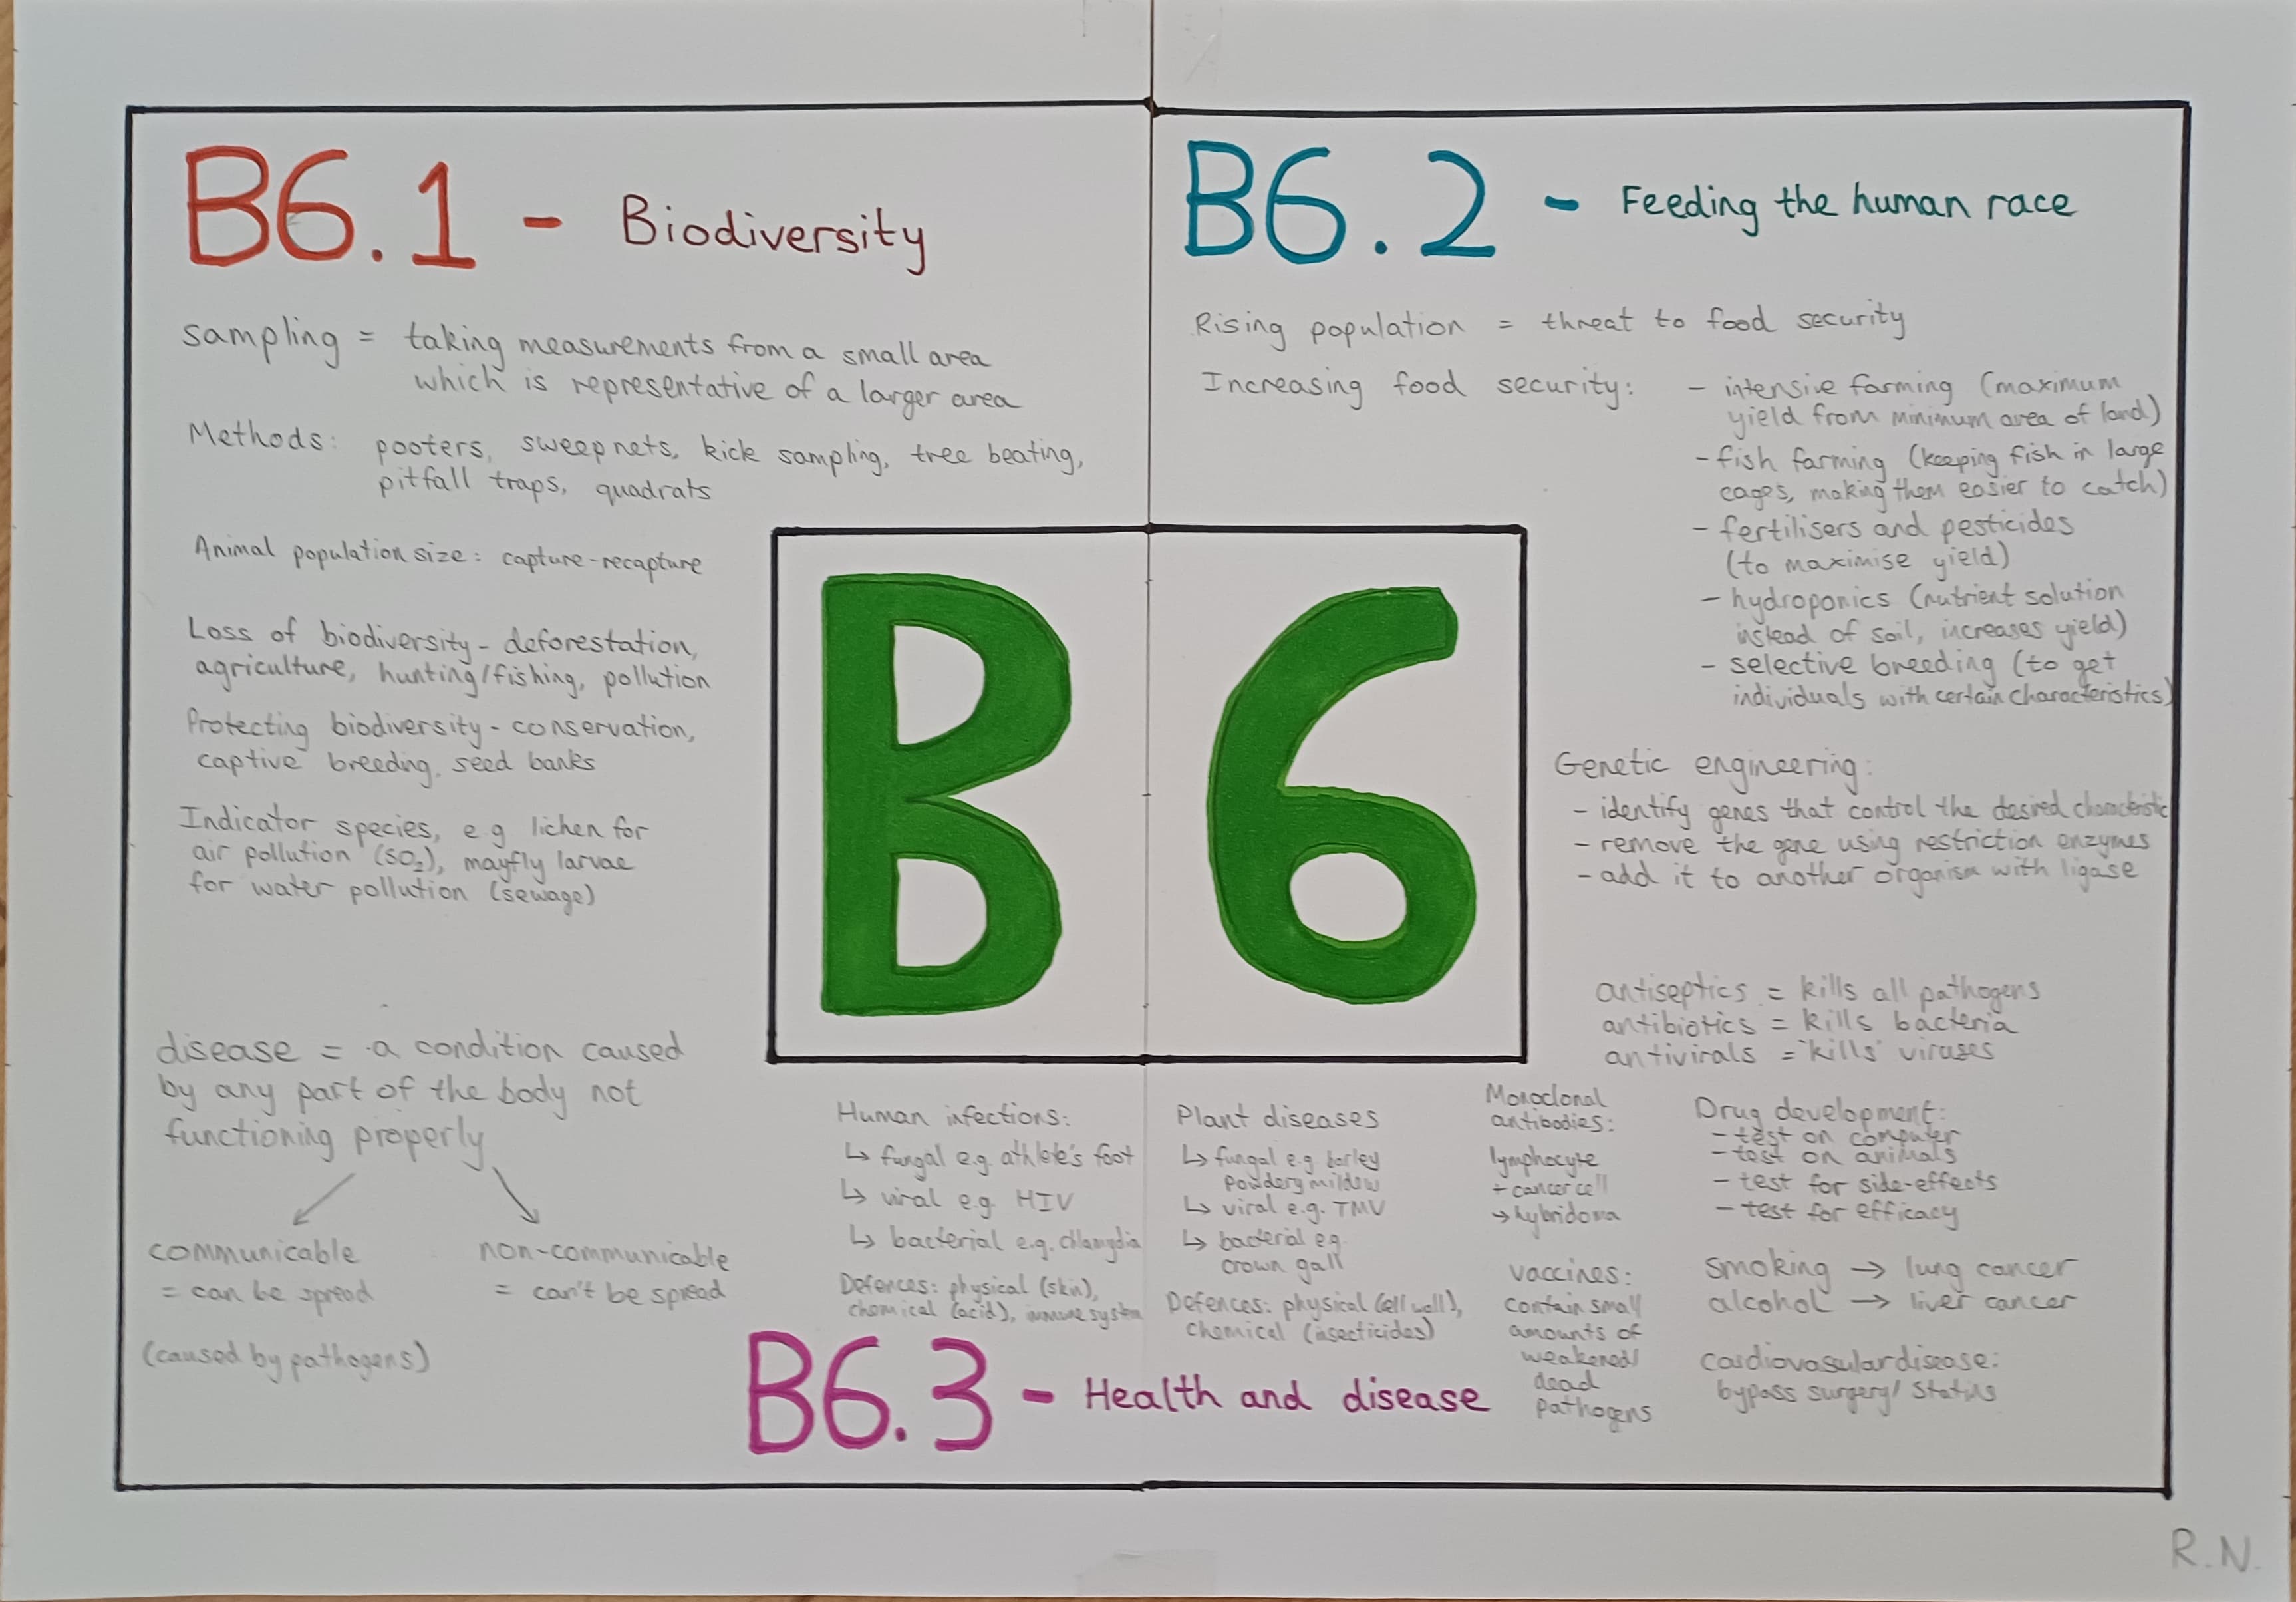 B6.1 - Biodiversity
sampling = taking measurements from a small area
which is representative of a larger area
Methods: pooters, sweepnets, kick sampling, tree beating,
pitfall traps, quadrats
Animal population size: capture-recapture
Loss of biodiversity - deforestation,
agriculture, hunting/fishing, pollution
Protecting biodiversity - conservation,
captive breeding, seed banks
Indicator species, e.g lichen for
air pollution (SO₂), mayfly larvae
for water pollution (sewage)
B6.2 - Feeding the human race
Rising population = threat to food security
Increasing food security: - intensive farming (maximum
yield from minimum area of land)
- fish farming (keeping fish in large
cages, making them easier to catch)
- fertilisers and pesticides
(to maximise yield)
- hydroponics (nutrient solution
instead of soil, increases yield)
- selective breeding (to get
individuals with certain characteristics)
Genetic engineering:
- identify genes that control the desired characteristic
- remove the gene using restriction enzymes
- add it to another organism with ligase
B6
disease = a condition caused
by any part of the body not
functioning properly
communicable
= can be spread
(caused by pathogens)
non-communicable
= can't be spread
Human infections:
↳ fungal e.g. athlete's foot
↳ viral e.g. HIV
↳ bacterial e.g. chlamydia
Defences: physical (skin),
chemical (acid), immune system
Plant diseases
↳ fungal e.g barley
powdery mildew
↳ viral e.g. TMV
↳ bacterial e.g.
crown gall
Defences: physical (cell wall),
chemical (insecticides)
antiseptics = kills all pathogens
antibiotics = kills bacteria
antivirals = 'kills' viruses
Monoclonal
antibodies:
lymphocyte
+ cancer cell
→ hybridoma
vaccines:
contain small
amounts of
weakened/
dead
pathogens
Drug development:
- test on computer
- test on animals
- test for side-effects
- test for efficacy
smoking → lung cancer
alcohol → liver cancer
cardiovascular disease:
bypass surgery/ statins
B6.3 - Health and disease
R.N.